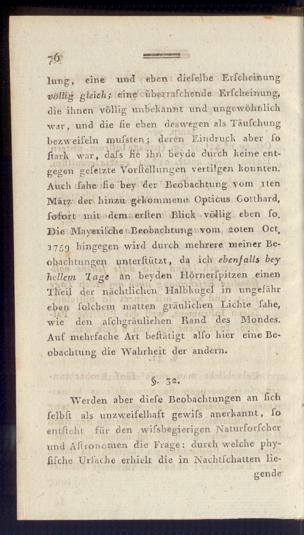 76
lung, eine und eben dieſelbe Erſcheinung
völlig gleich; eine überraſchende Erſcheinung,
die ihnen völlig unbekannt und ungewöhnlich
war, und die ſie eben deswegen als Täuſchung
bezweifeln muſsten; deren Eindruck aber ſo
ſtark war, daſs ſie ihn beyde durch keine ent-
gegen geſetzte Vorſtellungen vertilgen konnten.
Auch ſahe ſie bey der Beobachtung vom 1ten
März der hinzu gekommene Opticus Gotthard,
ſofort mit dem erſten Blick völlig eben ſo.
Die Mayeriſche Beobachtung vom 20ten Oct.
1759 hingegen wird durch mehrere meiner Be-
obachtungen unterſtützt, da ich ebenfalls bey
hellem Tage an beyden Hörnerſpitzen einen
Theil der nächtlichen Halbkugel in ungefähr
eben ſolchem matten gräulichen Lichte ſahe,
wie den aſchgräulichen Rand des Mondes.
Auf mehrfache Art beſtätigt alſo hier eine Be-
obachtung die Wahrheit der andern.
§. 32.
Werden aber dieſe Beobachtungen an ſich
ſelbſt als unzweifelhaft gewiſs anerkannt, ſo
entſteht für den wiſsbegierigen Naturforſcher
und Aſtronomen die Frage: durch welche phy-
ſiſche Urſache erhielt die in Nachtſchatten lie-
gende